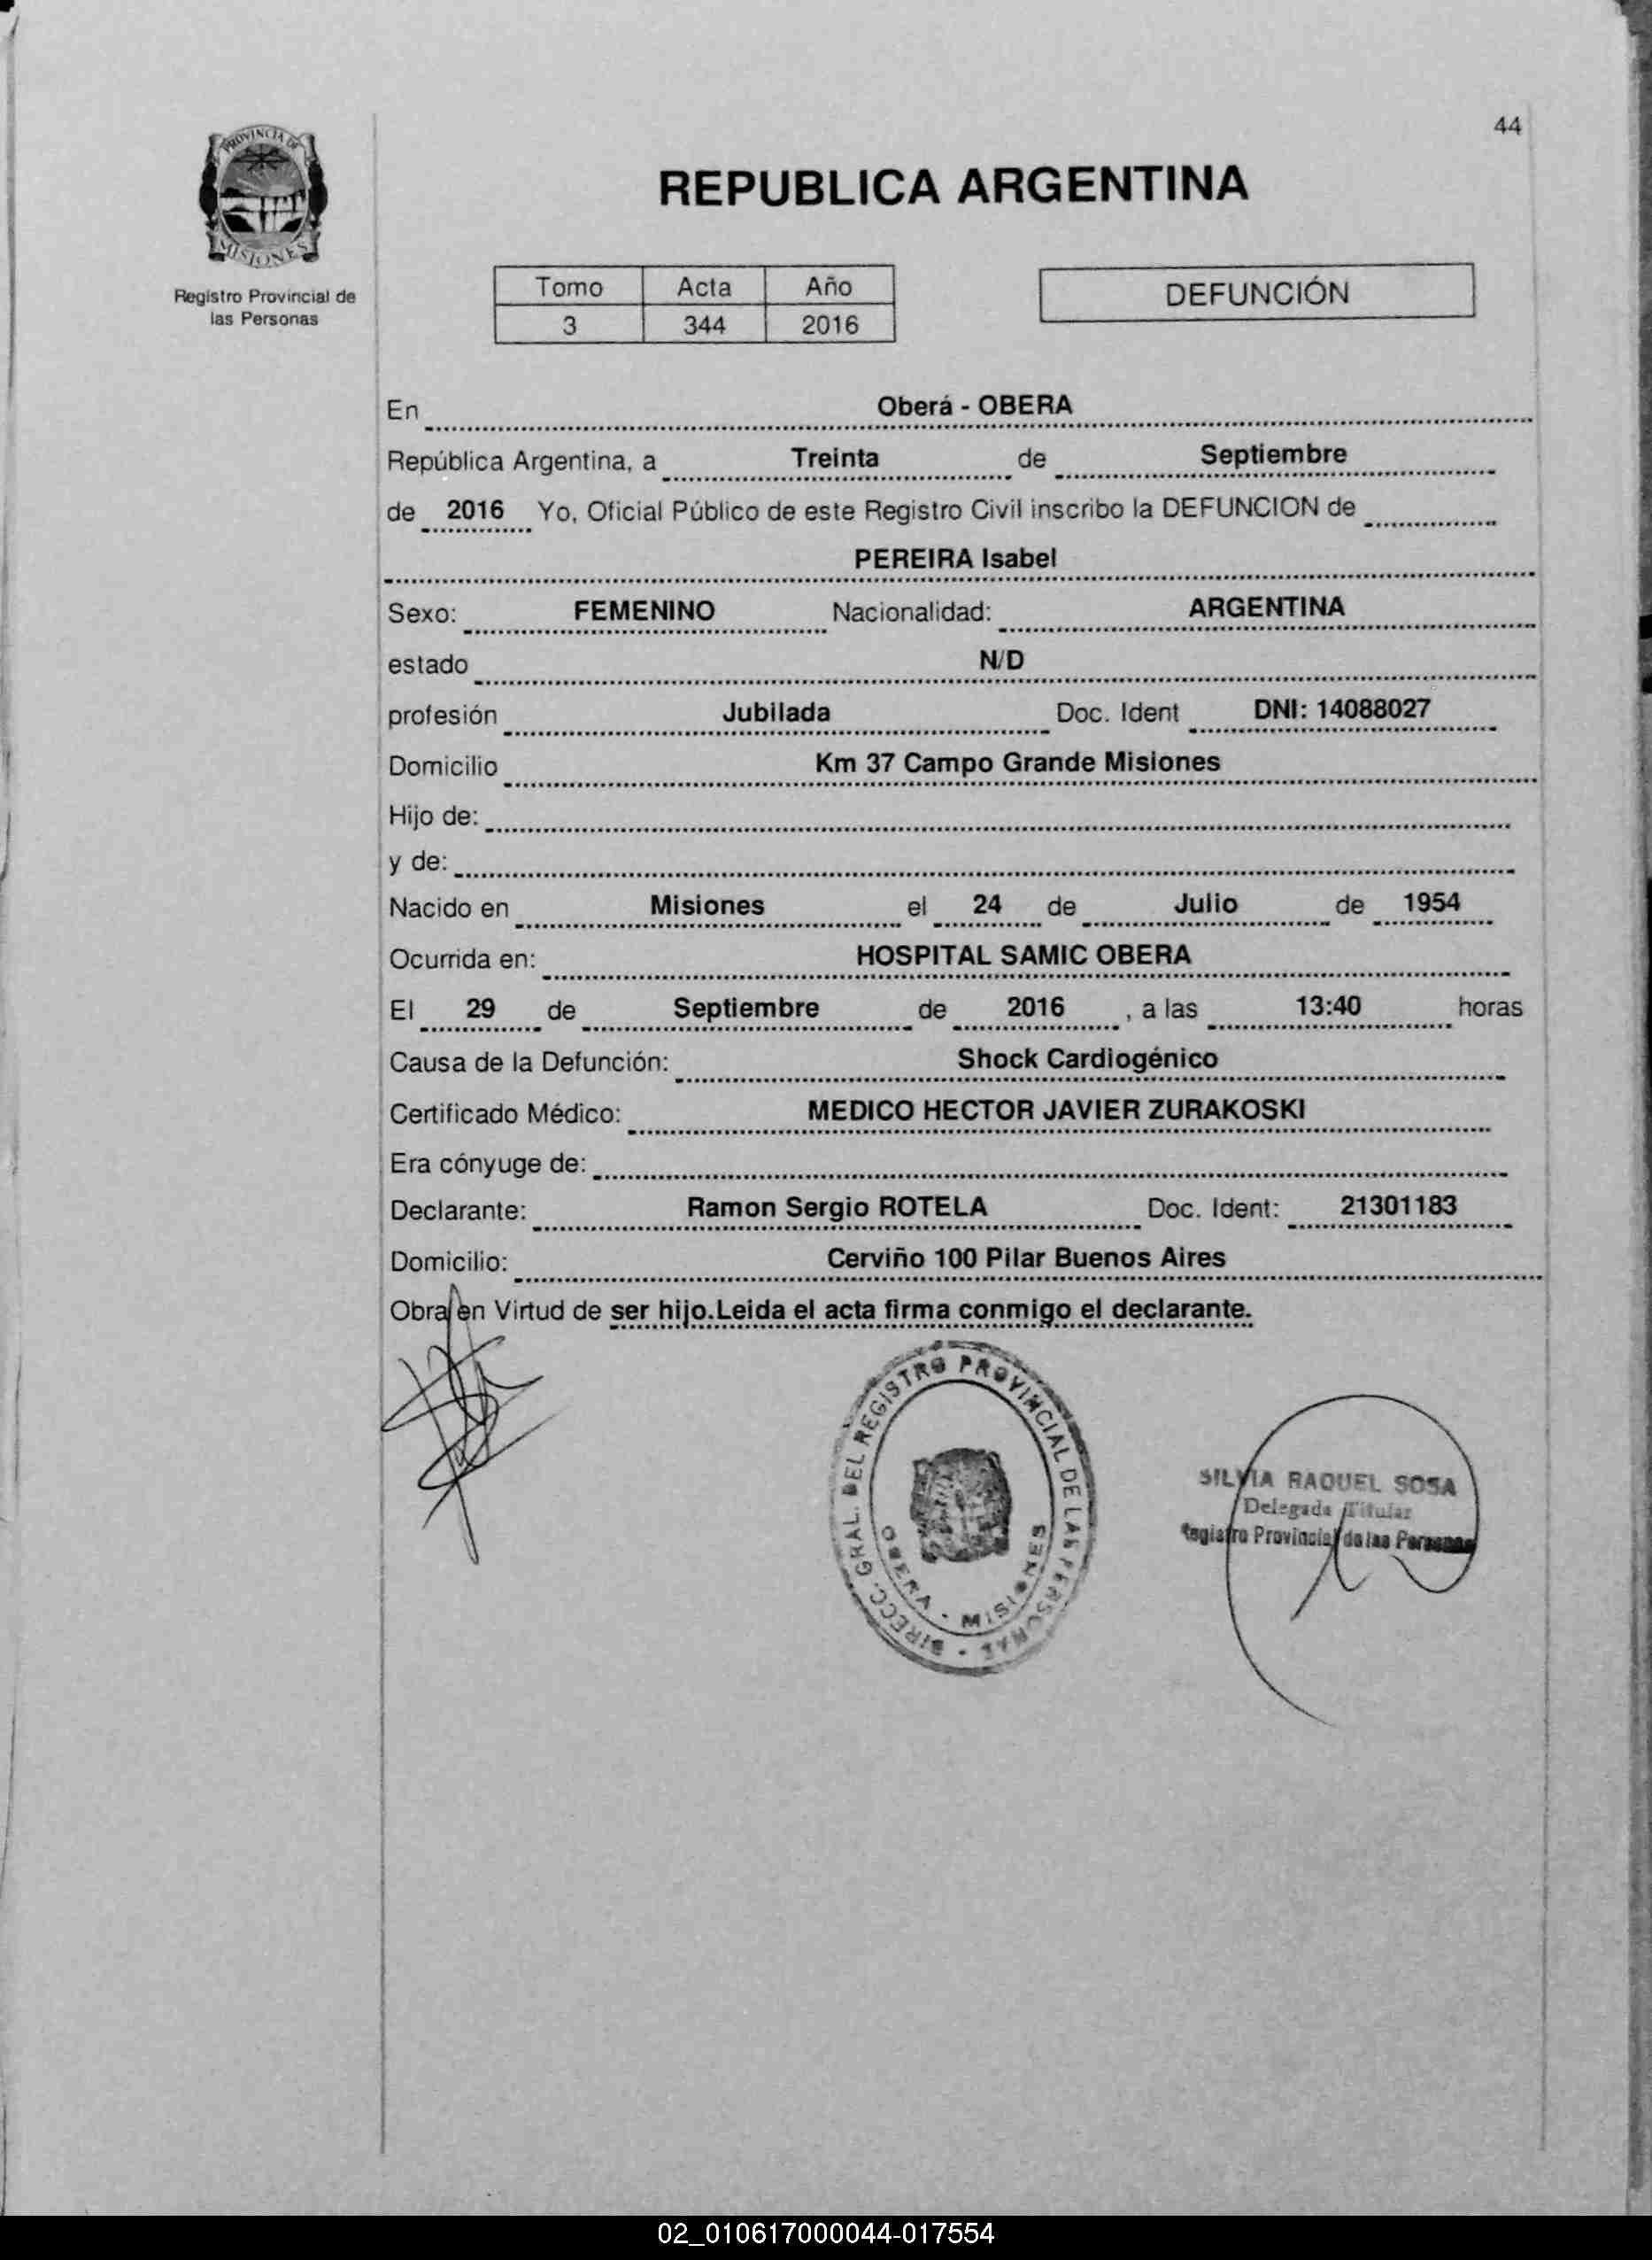 44
PROVINCIA DE
MISIONES
Registro Provincial de
las Personas
REPUBLICA ARGENTINA
Tomo Acta Año
3 344 2016
DEFUNCIÓN
En Oberá - OBERA
República Argentina, a Treinta de Septiembre
de 2016 Yo, Oficial Público de este Registro Civil inscribo la DEFUNCION de
PEREIRA Isabel
Sexo: FEMENINO Nacionalidad: ARGENTINA
estado N/D
profesión Jubilada Doc. Ident DNI: 14088027
Domicilio Km 37 Campo Grande Misiones
Hijo de:
y de:
Nacido en Misiones el 24 de Julio de 1954
Ocurrida en: HOSPITAL SAMIC OBERA
El 29 de Septiembre de 2016 , a las 13:40 horas
Causa de la Defunción: Shock Cardiogénico
Certificado Médico: MEDICO HECTOR JAVIER ZURAKOSKI
Era cónyuge de:
Declarante: Ramon Sergio ROTELA Doc. Ident: 21301183
Domicilio: Cerviño 100 Pilar Buenos Aires
Obra en Virtud de ser hijo.Leida el acta firma conmigo el declarante.
DIRECC. GRAL. DEL REGISTRO PROVINCIAL DE LAS PERSONAS
OBERA - MISIONES
SILVIA RAQUEL SOSA
Delegada Titular
Registro Provincial de las Personas
02_010617000044-017554